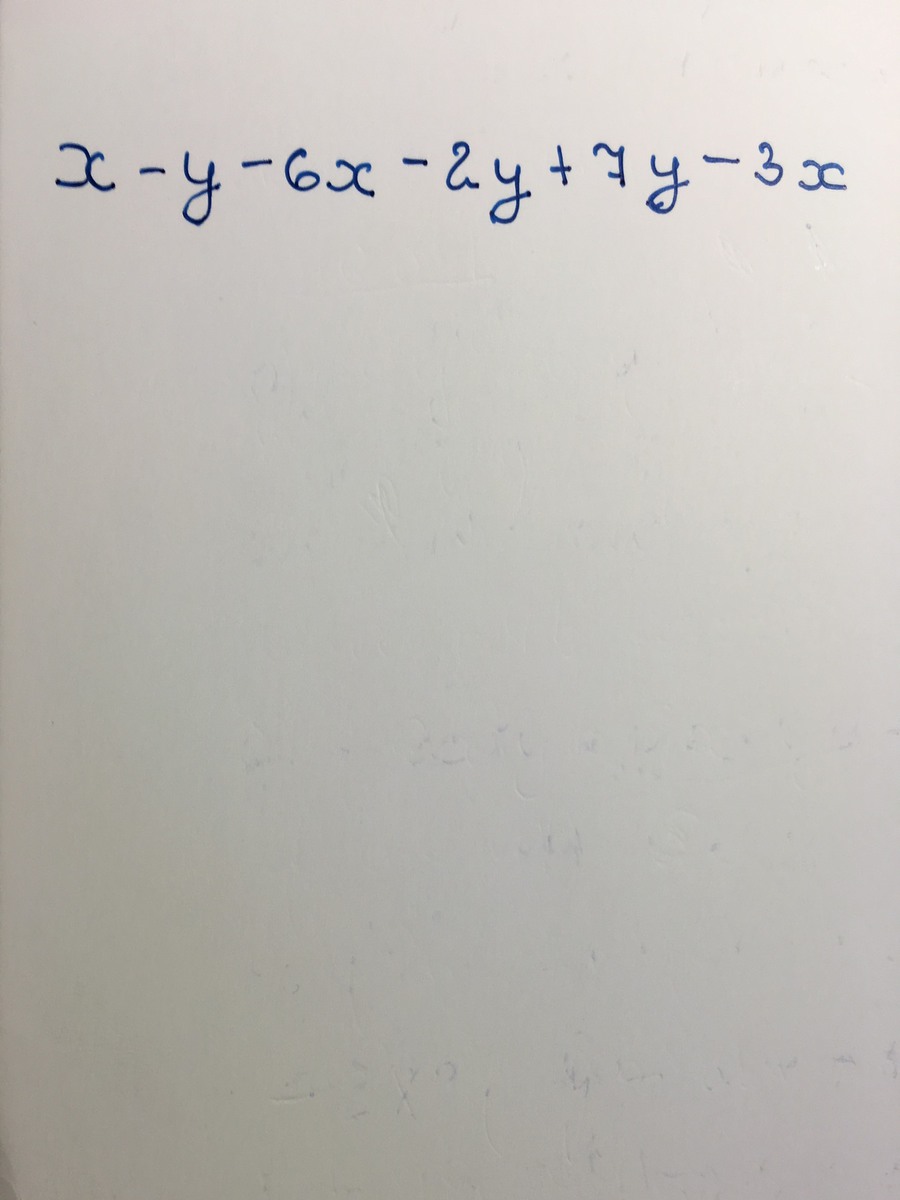 x - y - 6x - 2y + 7y - 3x